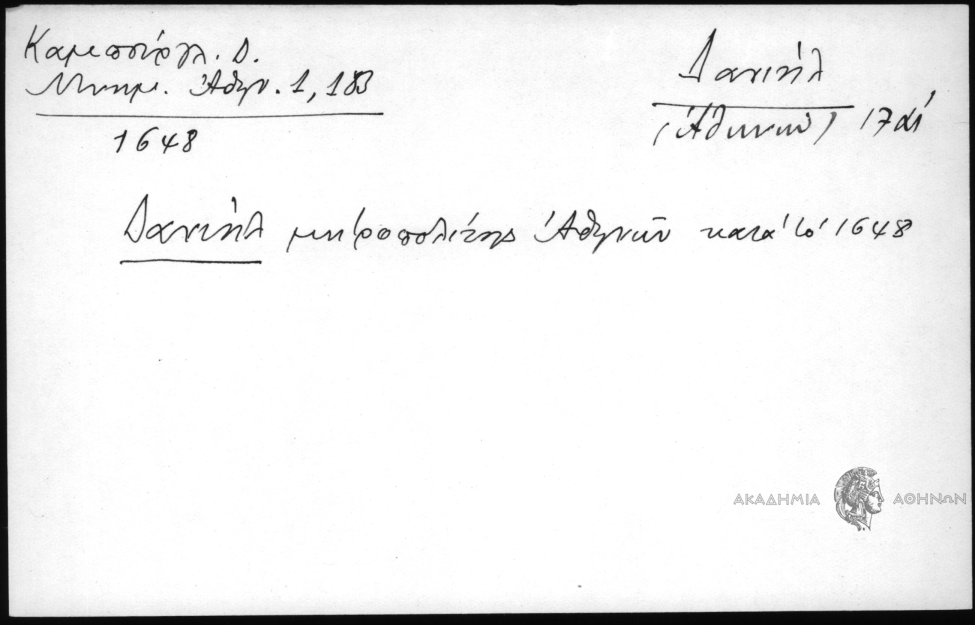 Καμπούργλ. Δ.
Μνημ. Ἀθην. 1, 183
1648
Δανιήλ
(Ἀθηνῶν) 17 αἰ
Δανιήλ μητροπολίτης Ἀθηνῶν κατὰ τὸ 1648
ΑΚΑΔΗΜΙΑ ΑΘΗΝΩΝ